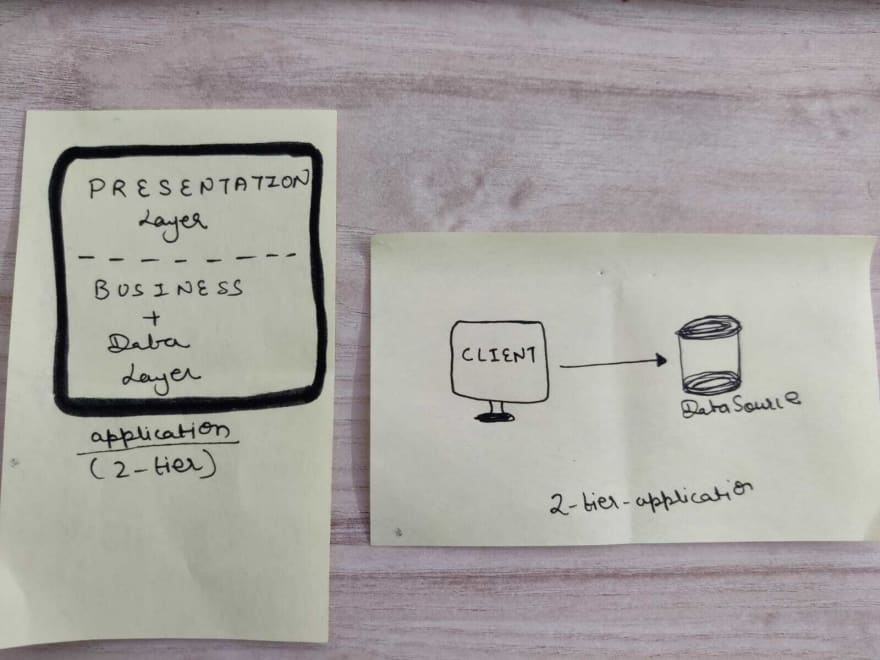 PRESENTATION
Layer
BUSINESS
+
Data
Layer
application
(2-tier)
CLIENT
DataSource
2-tier-application